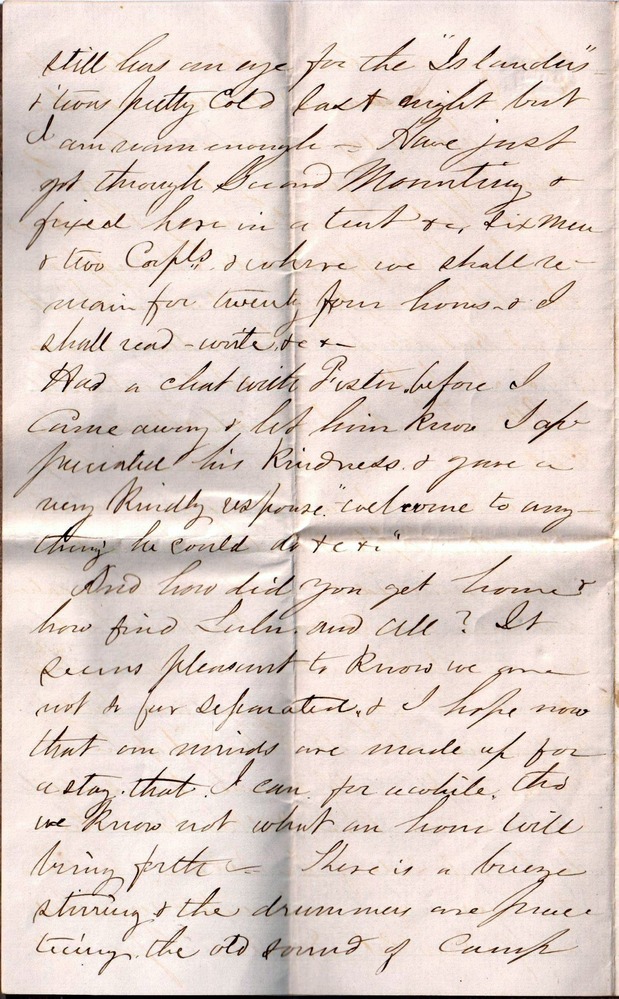 still has an eye for the "Islanders" -
& 'twas pretty cold last night but
I am warm enough - Have just
got through Guard Mounting &
fixed here in a tent &c, six men
& two Corpls. & where we shall re-
main for twenty four hours - & I
shall read - write &c & -
Had a chat with Foster before I
came away & let him know I ap-
preciated his kindness. & gave a
very kindly response. "welcome to any-
thing he could do &c &c"
And how did you get home &
how find Lulu. and all? It
seems pleasant to know we are
not so far separated. & I hope now
that our minds are made up for
a stay. that I can. for awhile. tho
we know not what an hour will
bring forth - There is a breeze
stirring & the drummers are prac-
ticing. the old sound of Camp